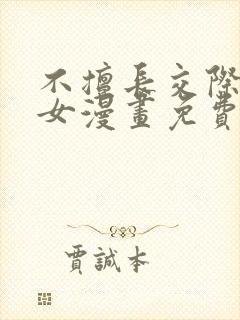 不擅長交際
女漫畫免費
賈誠本